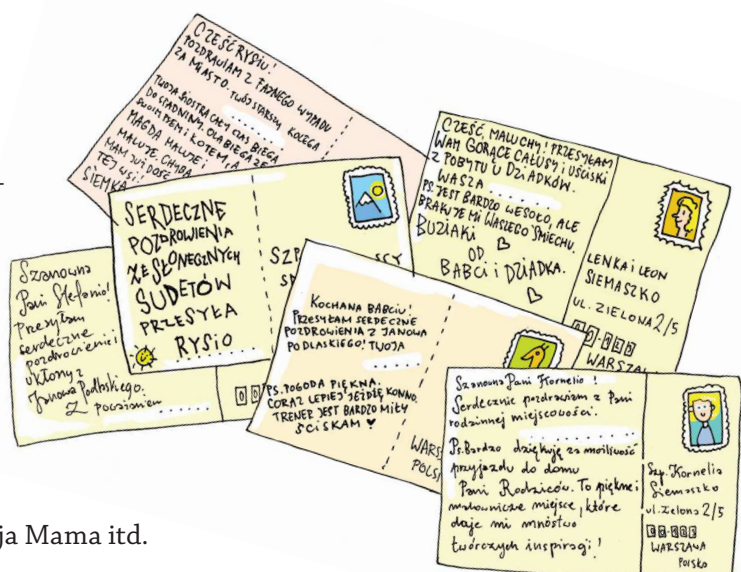 CZEŚĆ RYSIU!
POZDRAWIAM Z FAJNEGO WYPADU
ZA MIASTO. TWÓJ STARSZY KOLEGA
. . . . . . . .
TWOJA SIOSTRA CAŁY CZAS BIEGA
DO STADNINY, OLA BIEGA ZE
SWOIM PSEM I KOTEM, A
MAGDA MALUJE I
MALUJE. CHYBA
MAM JUŻ DOŚĆ
TEJ WSI.
SIEMKA
CZEŚĆ, MALUCHY! PRZESYŁAM
WAM GORĄCE CAŁUSY I UŚCISKI
Z POBYTU U DZIADKÓW.
WASZA . . . . . . . .
PS. JEST BARDZO WESOŁO, ALE
BRAKUJE MI WASZEGO ŚMIECHU.
BUZIAKI
OD
BABCI I DZIADKA.
LENKA i LEON
SIEMASZKO
UL. ZIELONA 2/5
WARSZAWA
SERDECZNE
POZDROWIENIA
ZE SŁONECZNYCH
SUDETÓW
PRZESYŁA
RYSIO
. . . . . . . .
Szanowna
Pani Stefanio!
Przesyłam
serdeczne
pozdrowienia i
ukłony z
Janowa Podlaskiego.
Z poważaniem . . . . . .
KOCHANA BABCIU!
PRZESYŁAM SERDECZNE
POZDROWIENIA Z JANOWA
PODLASKIEGO! TWOJA
. . . . . . . .
PS. POGODA PIĘKNA.
CORAZ LEPIEJ JEŻDŻĘ KONNO.
TRENER JEST BARDZO MIŁY
ŚCISKAM ♥
WARS
POLS
Szanowna Pani Kornelio!
Serdecznie pozdrawiam z Pani
rodzinnej miejscowości.
. . . . . . . .
Ps. Bardzo dziękuję za możliwość
przyjazdu do domu
Pani Rodziców. To piękne i
malownicze miejsce, które
daje mi mnóstwo
twórczych inspiracji!
Szp. Kornelia
Siemaszko
ul. Zielona 2/5
WARSZAWA
Polska
ja Mama itd.